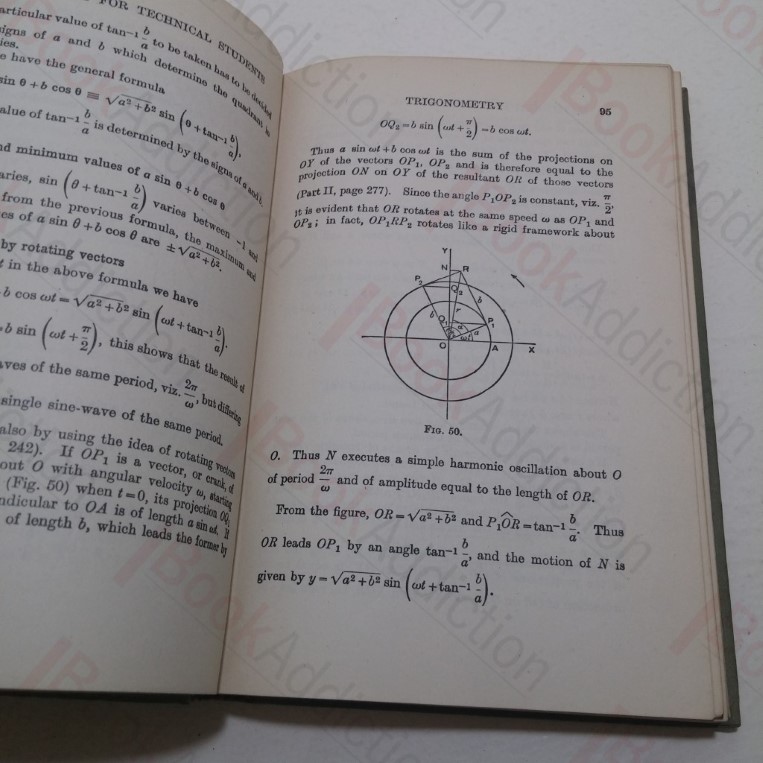 FOR TECHNICAL STUDENTS
articular value of tan⁻¹ b/a to be taken has to be decided
signs of a and b which determine the quadrant in
ies.
e have the general formula
sin θ + b cos θ ≡ √a² + b² sin (θ + tan⁻¹ b/a),
alue of tan⁻¹ b/a is determined by the signs of a and b.
nd minimum values of a sin θ + b cos θ
aries, sin (θ + tan⁻¹ b/a) varies between −1 and
from the previous formula, the maximum and
es of a sin θ + b cos θ are ±√a² + b².
by rotating vectors
t in the above formula we have
b cos ωt = √a² + b² sin (ωt + tan⁻¹ b/a).
b sin (ωt + π/2), this shows that the result of
aves of the same period, viz. 2π/ω, but differing
single sine-wave of the same period.
also by using the idea of rotating vectors
242). If OP₁ is a vector, or crank, of
out O with angular velocity ω, starting
(Fig. 50) when t = 0, its projection OQ₁
ndicular to OA is of length a sin ωt. If
of length b, which leads the former by
TRIGONOMETRY 95
OQ₂ = b sin (ωt + π/2) = b cos ωt.
Thus a sin ωt + b cos ωt is the sum of the projections on
OY of the vectors OP₁, OP₂ and is therefore equal to the
projection ON on OY of the resultant OR of those vectors
(Part II, page 277). Since the angle P₁OP₂ is constant, viz. π/2,
it is evident that OR rotates at the same speed ω as OP₁ and
OP₂; in fact, OP₁RP₂ rotates like a rigid framework about
Y
N R
P₂
Q₂
b
r
b
Q₁ a P₁
a
ωt
O A X
FIG. 50.
O. Thus N executes a simple harmonic oscillation about O
of period 2π/ω and of amplitude equal to the length of OR.
From the figure, OR = √a² + b² and P₁ÔR = tan⁻¹ b/a. Thus
OR leads OP₁ by an angle tan⁻¹ b/a, and the motion of N is
given by y = √a² + b² sin (ωt + tan⁻¹ b/a).
BookAddiction